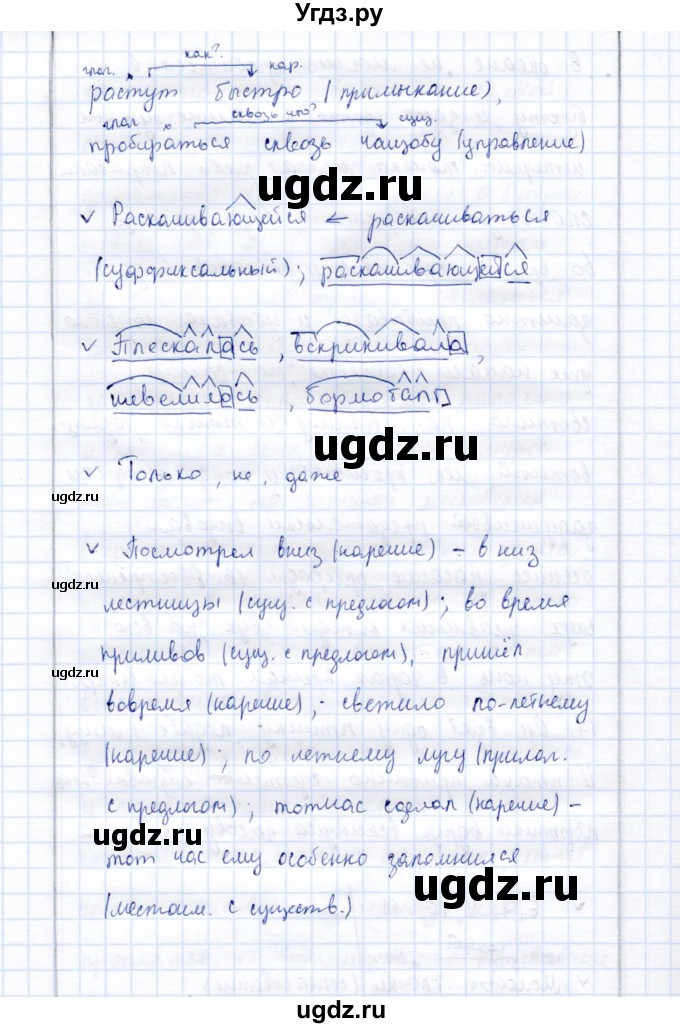 Угдз.ру
глаг. как? нар.
растут быстро (примыкание),
глаг. сквозь что? сущ.
пробираться сквозь чащобу (управление)
ugdz.ru
v Раскашивающейся ← раскашиваться
(суффиксальный); раскашивающейся
ugdz.ru
v Плескалась, вскрикивала,
шевелилась, бормотал
ugdz.ru
v Только, не, даже
ugdz.ru
v Посмотрел вниз (наречие) – в низ
ugdz.ru
лестницы (сущ. с предлогом); во время
приливов (сущ. с предлогом), – пришёл
ugdz.ru
вовремя (наречие); светило по-летнему
(наречие); по летнему лугу (прилаг.
с предлогом); тотчас сделал (наречие) –
ugdz.ru
тот час ему особенно запомнился
ugdz.ru
(местоим. с существ.)
ugdz.ru